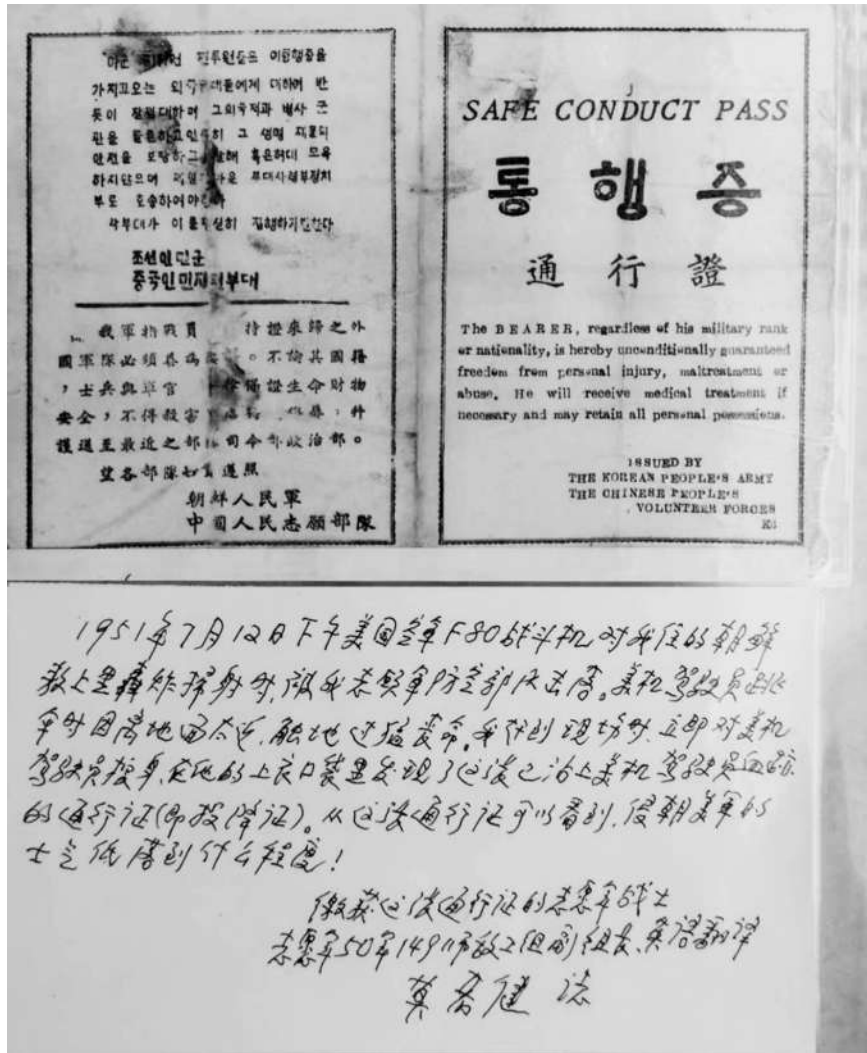 가지고오는 외국군대들에게 대하여 반
듯이 환영대하며 그외국적과 병사 군
안전을 보장하고
하지않으며
부로 호송하여야한다
각부대가 이를 착실히 집행하기를바란다
조선인민군
중국인민지원부대
我軍指戰員 持證來歸之外
國軍隊必須 不論其國籍
，士兵與軍官 保證生命財物
安全，不得殺害 侮辱，并
護送至最近之部隊司令部政治部。
望各部隊切實遵照
朝鮮人民軍
中國人民志願部隊
SAFE CONDUCT PASS
통행증
通行證
The BEARER, regardless of his military rank
or nationality, is hereby unconditionally guaranteed
freedom from personal injury, maltreatment or
abuse. He will receive medical treatment if
necessary and may retain all personal possessions.
ISSUED BY
THE KOREAN PEOPLE'S ARMY
THE CHINESE PEOPLE'S
VOLUNTEER FORCES
1951年7月12日下午美国空军F80战斗机对我住的朝鲜
上里轰炸掃射时,被我志愿军防空部队击落。美机驾驶员跳
伞时因离地面太近,触地过猛丧命。我赶到现场时,立即对美机
驾驶员搜身,在他的上衣口袋里发现了这张沾上美机驾驶员血迹
的通行证(即投降证)。从这张通行证可以看到,侵朝美军的
士气低落到什么程度!
缴获这张通行证的志愿军战士
志愿军50军149师敌工组副组长、英语翻译
健 志